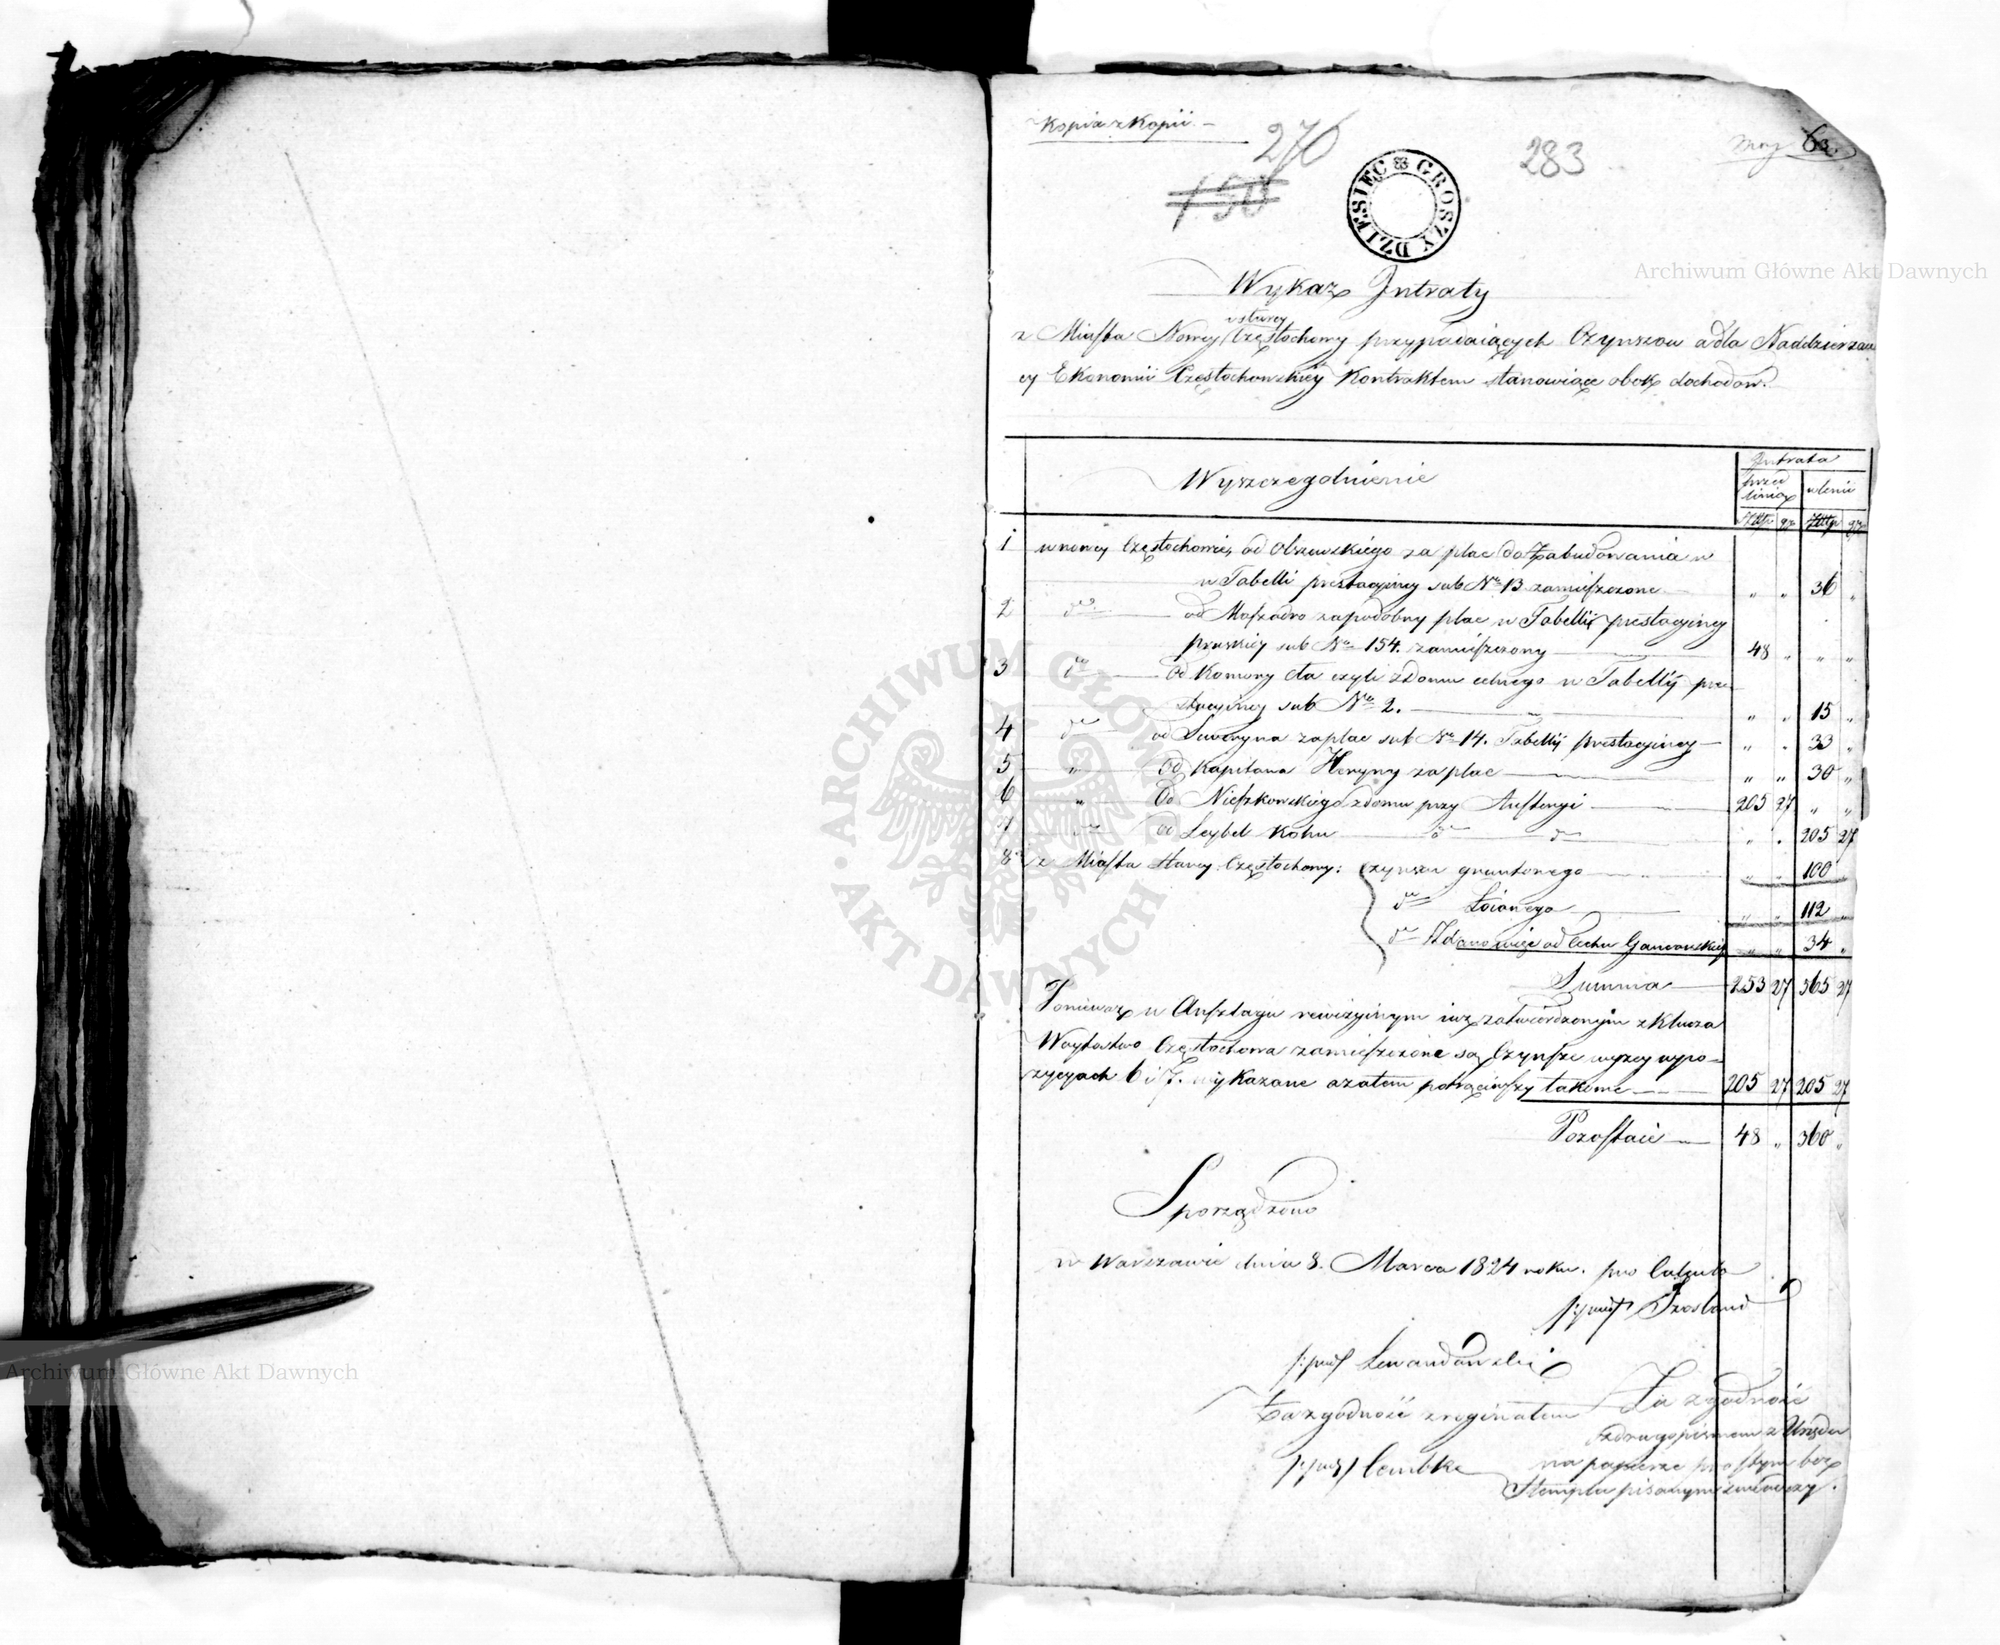 Kopia z Kopii
276
283
150
DZIESIĘC GROSZY
Archiwum Główne Akt Dawnych
Wykaz Jntraty
i starey
z Miasta Nowey Częstochowy przypadaiących Czynszow a dla Naddzierżaw
cy Ekonomii Częstochowskiey Kontraktem stanowiące obok dochodow.
Wyszczegolnienie
Jntrata
przed linią
w linii
Złtp gr Złtp gr
1 w nowey Częstochowie, od Olszewskiego za plac do Zabudowania w
w Tabelli prestacyiney sub No 13 zamieszczone „ „ 36 „
2 do od Maszadro za podobny plac w Tabelli prestacyiney
pruskiey sub No 154. zamieszczony 48 „ „ „
3 do Od Komory Cła czyli z Domu celnego w Tabelli pre-
stacyiney sub No 2. „ „ 15 „
4 do od Suweryna za plac sub No 14. Tabelli prestacyiney „ „ 33 „
5 „ Od Kapitana Heryny za plac „ „ 30 „
6 „ Od Nieszkowskiego z domu przy 205 27 „ „
7 do od Leybel Kohn do do „ „ 205 27
8 z Miasta Starey Częstochowy: czynszu gruntowego „ „ 100 „
do Łoiowego „ „ 112 „
do od Cechu Garcarskiego „ „ 34 „
Summa 253 27 565 27
Ponieważ w Anszlagu rewizyinym iuż zatwierdzonym z Klucza
Woytostwo Częstochowa zamieszczone są Czynsze wyzey w po-
zycyach 6 i 7. wykazane a zatem potrąciwszy takowe 205 27 205 27
Pozostaie 48 „ 360 „
Sporządzono
w Warszawie dnia 8. Marca 1824 roku. pro Calculo
Lewandowski
Za zgodność z oryginałem
Za zgodność
z drugopismem z Urzędu
na papierze prostym bez
Stempla pisanym
ARCHIWUM GŁÓWNE AKT DAWNYCH
Archiwum Główne Akt Dawnych